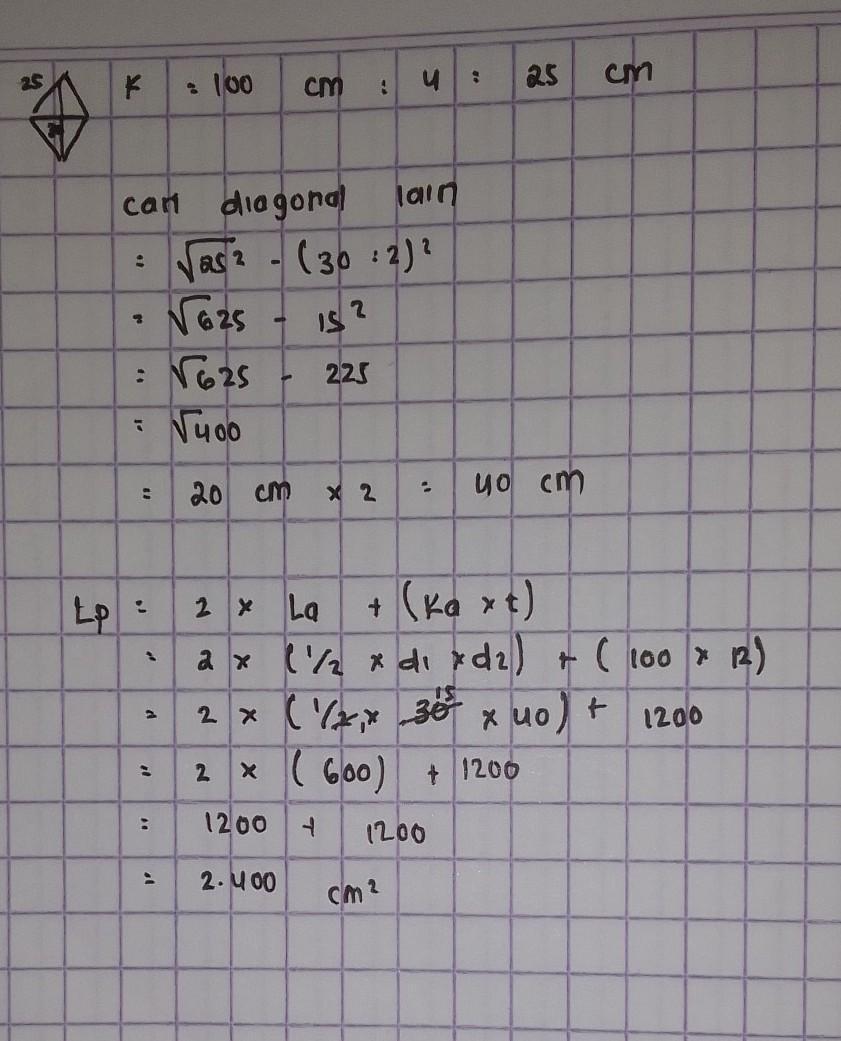 25 K = 100 cm : 4 = 25 cm
30
cari diagonal lain
= √25² - (30 : 2)²
= √625 - 15²
= √625 - 225
= √400
= 20 cm x 2 = 40 cm
Lp = 2 x La + (Ka x t)
= 2 x (1/2 x d1 x d2) + (100 x 12)
= 2 x (1/2 x 30 15 x 40) + 1200
= 2 x (600) + 1200
= 1200 + 1200
= 2.400 cm²